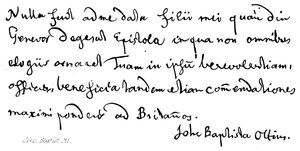 Nulla fuit ad me data filii mei quam diu
Genevae degeret Epistola in qua non omnibus
elogiis ornaret Tuam in ipsum benevolentiam,
officia, beneficia tandem etiam com̃endationes
maximi ponderis ad Britanos.
Joh: Baptista Ottius.